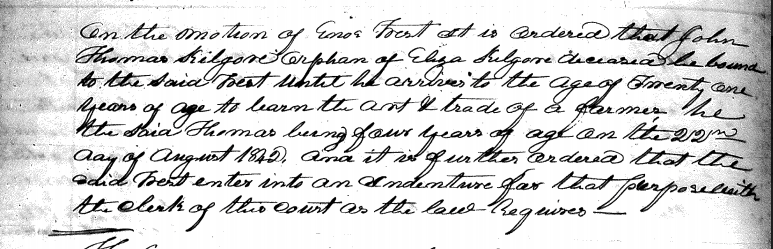 On the motion of Enos Fost it is ordered that John
Thomas Kilgore orphan of Eliza Kilgore deceased be bound
to the said Fost until he arrives to the age of Twenty one
years of age to learn the art & trade of a farmer, he
the said Thomas being four years of age on the 22nd
day of August 1842, and it is further ordered that the
said Fost enter into an Indenture for that purpose with
the Clerk of this Court as the law requires —